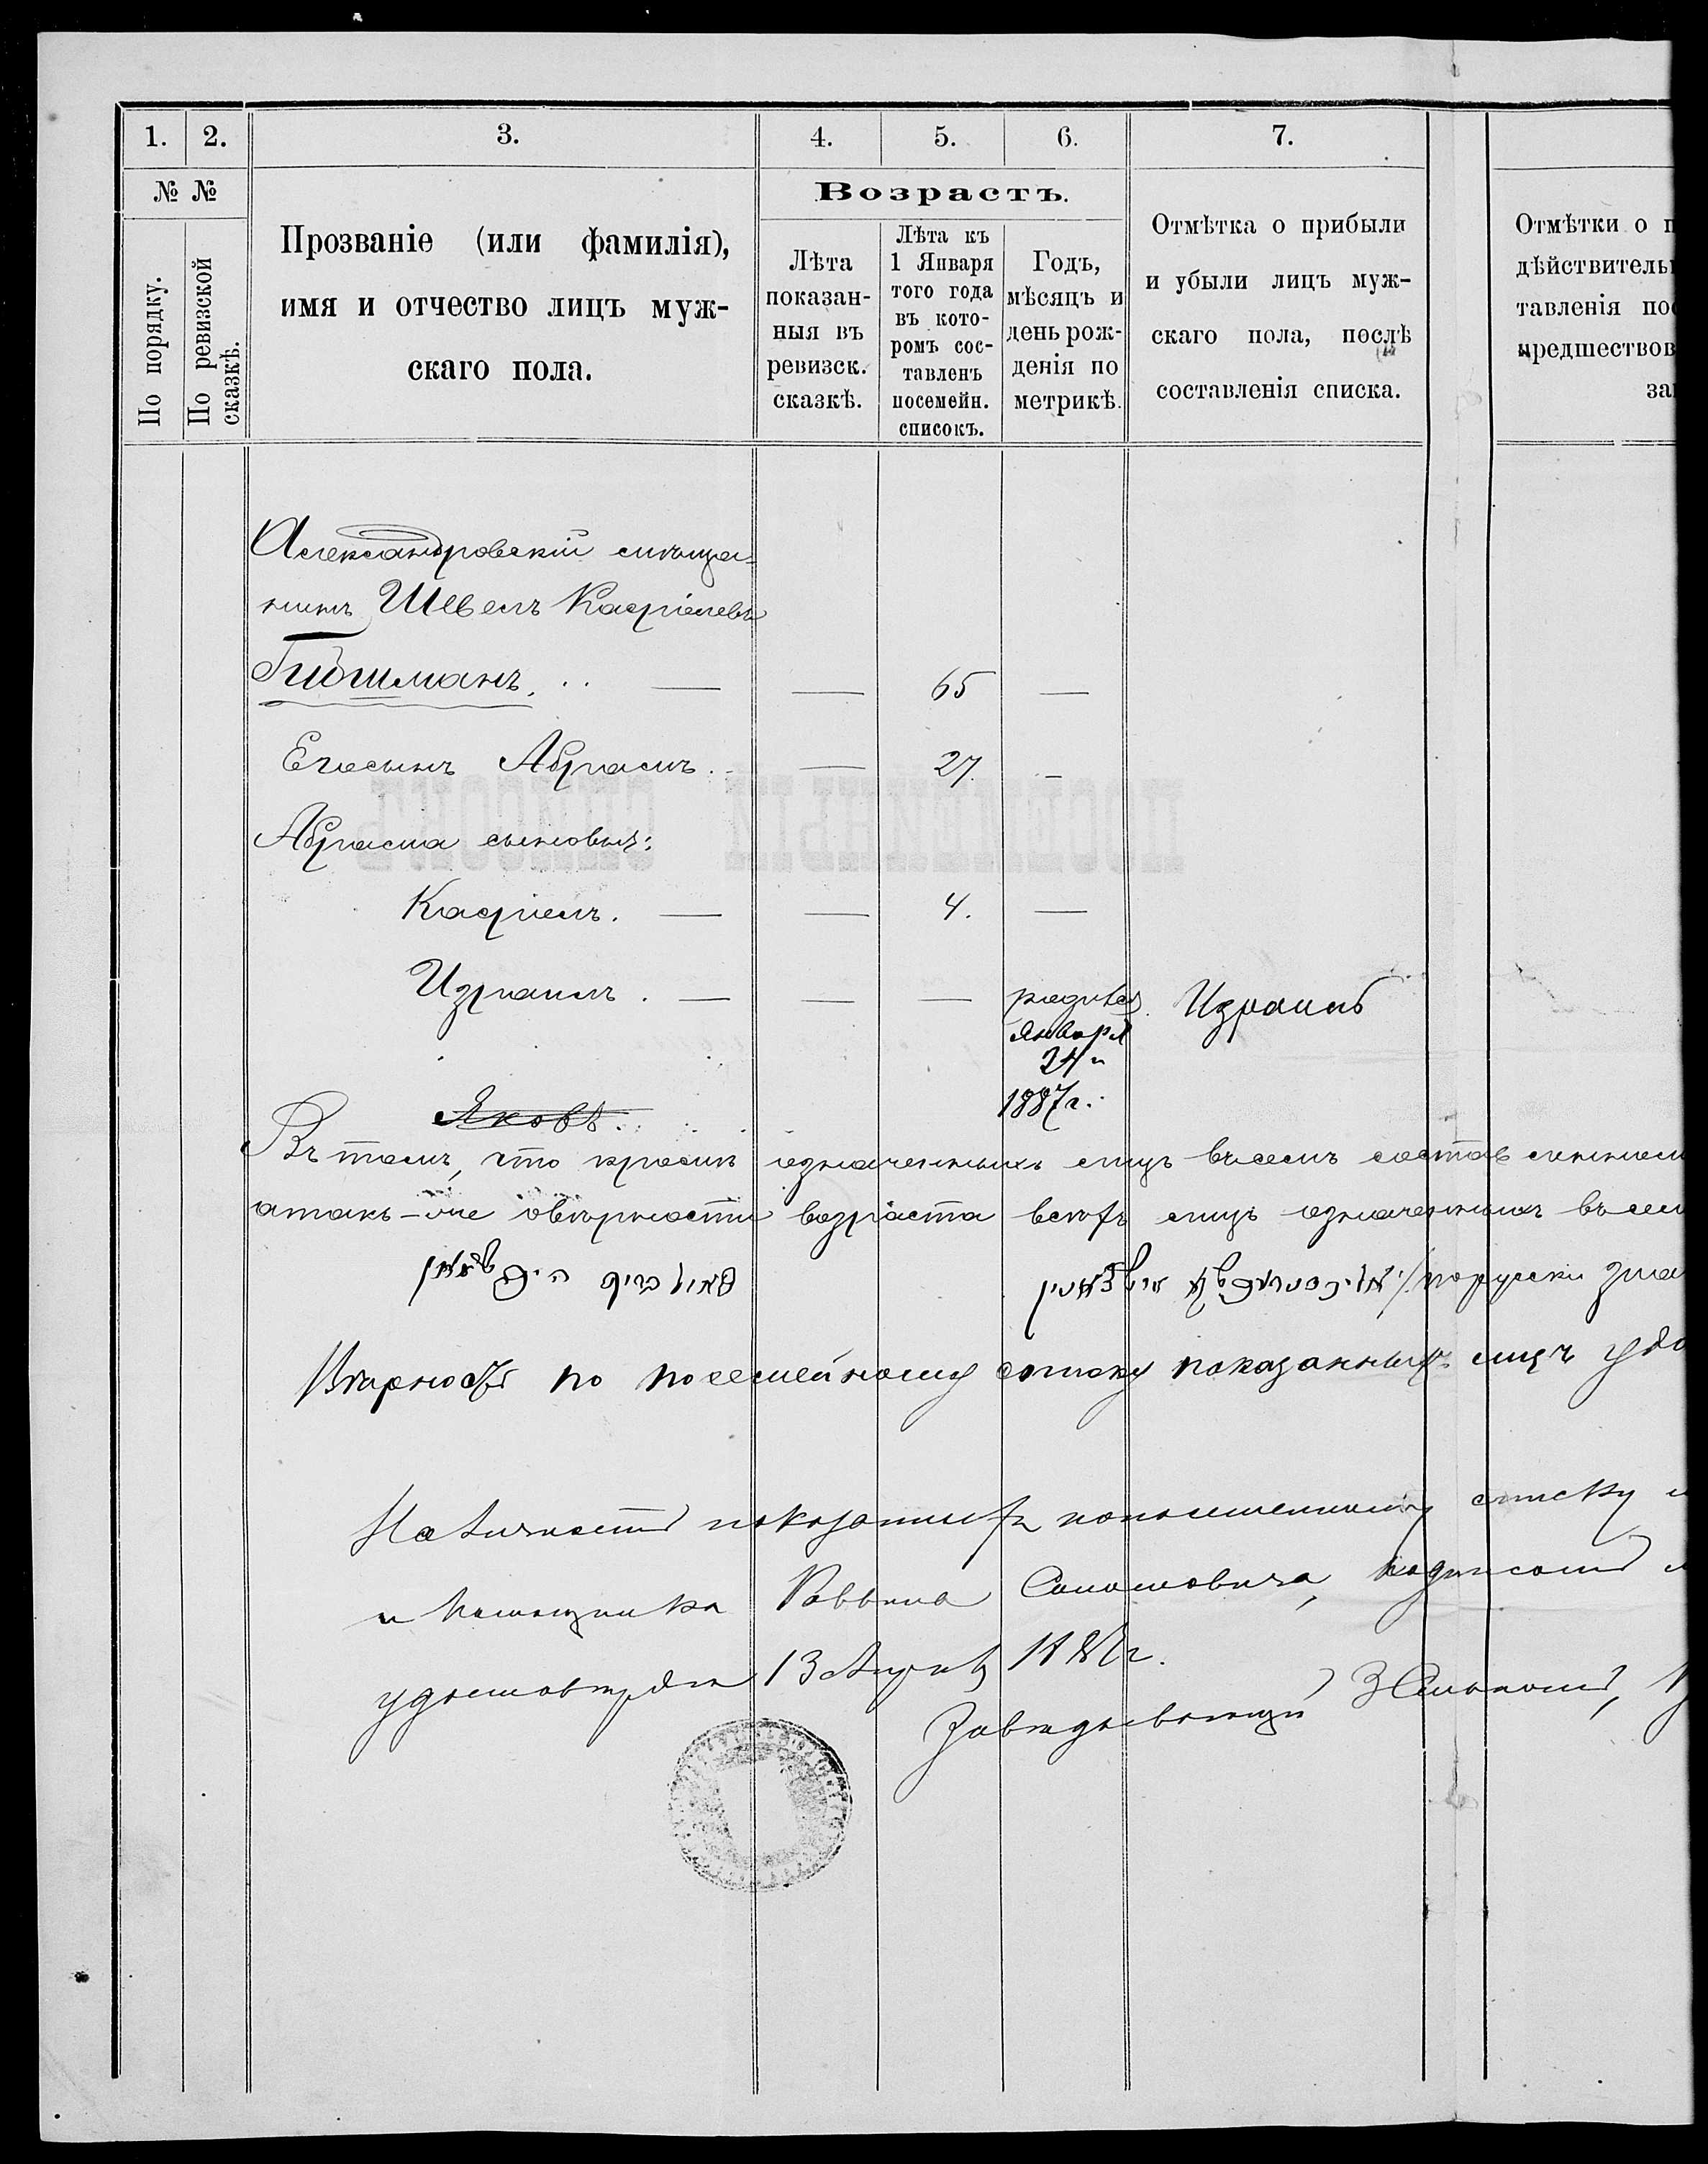 1. 2. 3. 4. 5. 6. 7.
№ №
По порядку.
По ревизской сказкѣ.
Прозваніе (или фамилія),
имя и отчество лицъ муж-
скаго пола.
Возрастъ.
Лѣта
показан-
ныя въ
ревизск.
сказкѣ.
Лѣта къ
1 Января
того года
въ кото-
ромъ сос-
тавленъ
посемейн.
списокъ.
Годъ,
мѣсяцъ и
день рож-
денія по
метрикѣ.
Отмѣтка о прибыли
и убыли лицъ муж-
скаго пола, послѣ
составленія списка.
Отмѣтки о п
дѣйствитель
тавленія по
предшествов
за
Александровскій мѣща-
нинъ Шевель Касріелевъ
Гибшманъ. — — 65 —
Его сынъ Абрамъ — 27. —
Абрама сыновья:
Касріель. — — 4. —
Израиль. — — — родился Израиль
Января
24
1887 г.
Яковъ.
Въ томъ, что кромѣ означенныхъ лицъ въ семъ составленном
а такъ-же о вѣрности возраста всѣхъ лицъ означенныхъ въ сем
/порусски зна
Вѣрность по посемейному списку показанныхъ лицъ удо
показанныхъ посемейному списку
и помощника Раввина Саломовича, подписомъ
удостовѣряю 13 1887 г.
Завѣдывающій